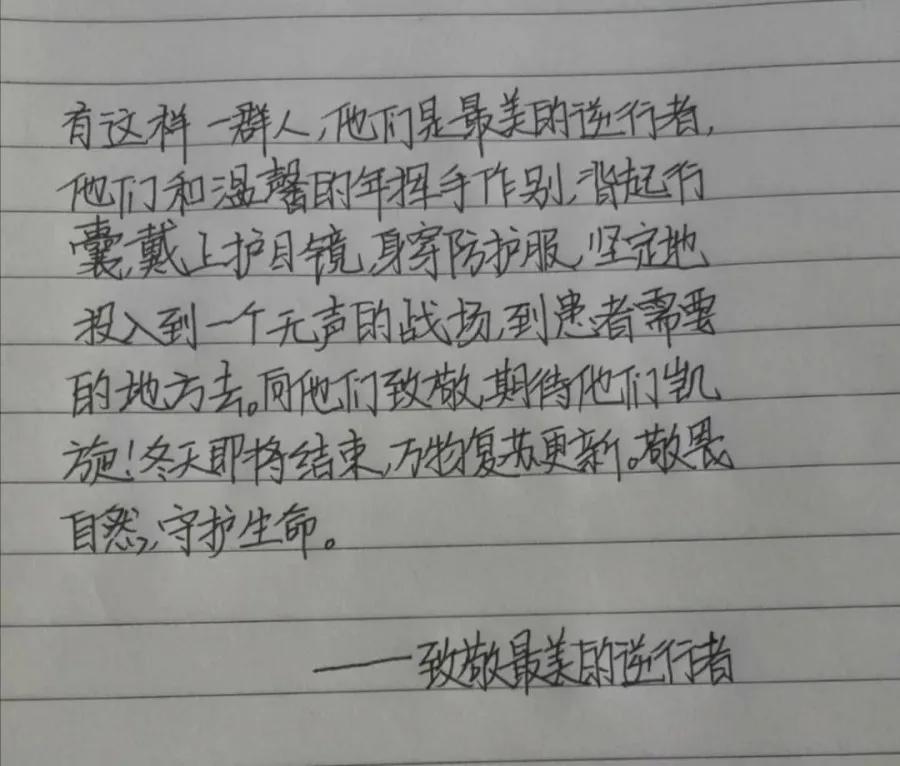 有这样一群人,他们是最美的逆行者,
他们和温馨的年挥手作别,背起行
囊,戴上护目镜,身穿防护服,坚定地
投入到一个无声的战场,到患者需要
的地方去。向他们致敬,期待他们凯
旋!冬天即将结束,万物复苏更新。敬畏
自然,守护生命。
——致敬最美的逆行者